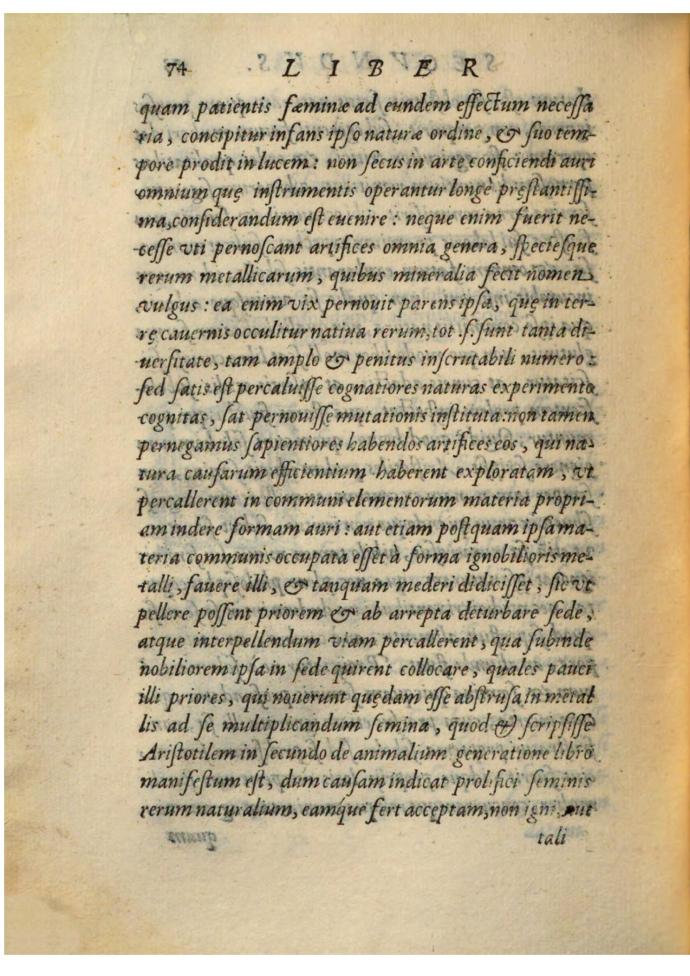 74 LIBER
quam patientis fæminæ ad eundem effectum necessa
ria, concipitur infans ipso naturæ ordine, & suo tem-
pore prodit in lucem: non secus in arte conficiendi auri
omnium quę instrumentis operantur longè pręstantissi-
ma, considerandum est euenire: neque enim fuerit ne-
cesse vti pernoscant artifices omnia genera, speciesque
rerum metallicarum, quibus mineralia fecit nomen
vulgus: ea enim vix pernouit parens ipsa, quę in ter-
rę cauernis occulitur natiua rerum, tot .s. sunt tanta di-
uersitate, tam amplo & penitus inscrutabili numero:
sed satis est percaluisse cognatiores naturas experimento
cognitas, sat pernouisse mutationis instituta: non tamen
pernegamus sapientiores habendos artifices eos, qui na-
tura causarum efficientium haberent exploratam, vt
percallerent in communi elementorum materia propri-
am indere formam auri: aut etiam postquam ipsa ma-
teria communis occupata esset à forma ignobilioris me-
talli, fauere illi, & tanquam mederi didicisset, sic vt
pellere possent priorem & ab arrepta deturbare sede,
atque interpellendum viam percallerent, qua subinde
nobiliorem ipsa in sede quirent collocare, quales pauci
illi priores, qui nouerunt quędam esse abstrusa in metal
lis ad se multiplicandum semina, quod & scripsisse
Aristotilem in secundo de animalium generatione libro
manifestum est, dum causam indicat prolifici seminis
rerum naturalium, eamque fert acceptam, non igni, aut
tali